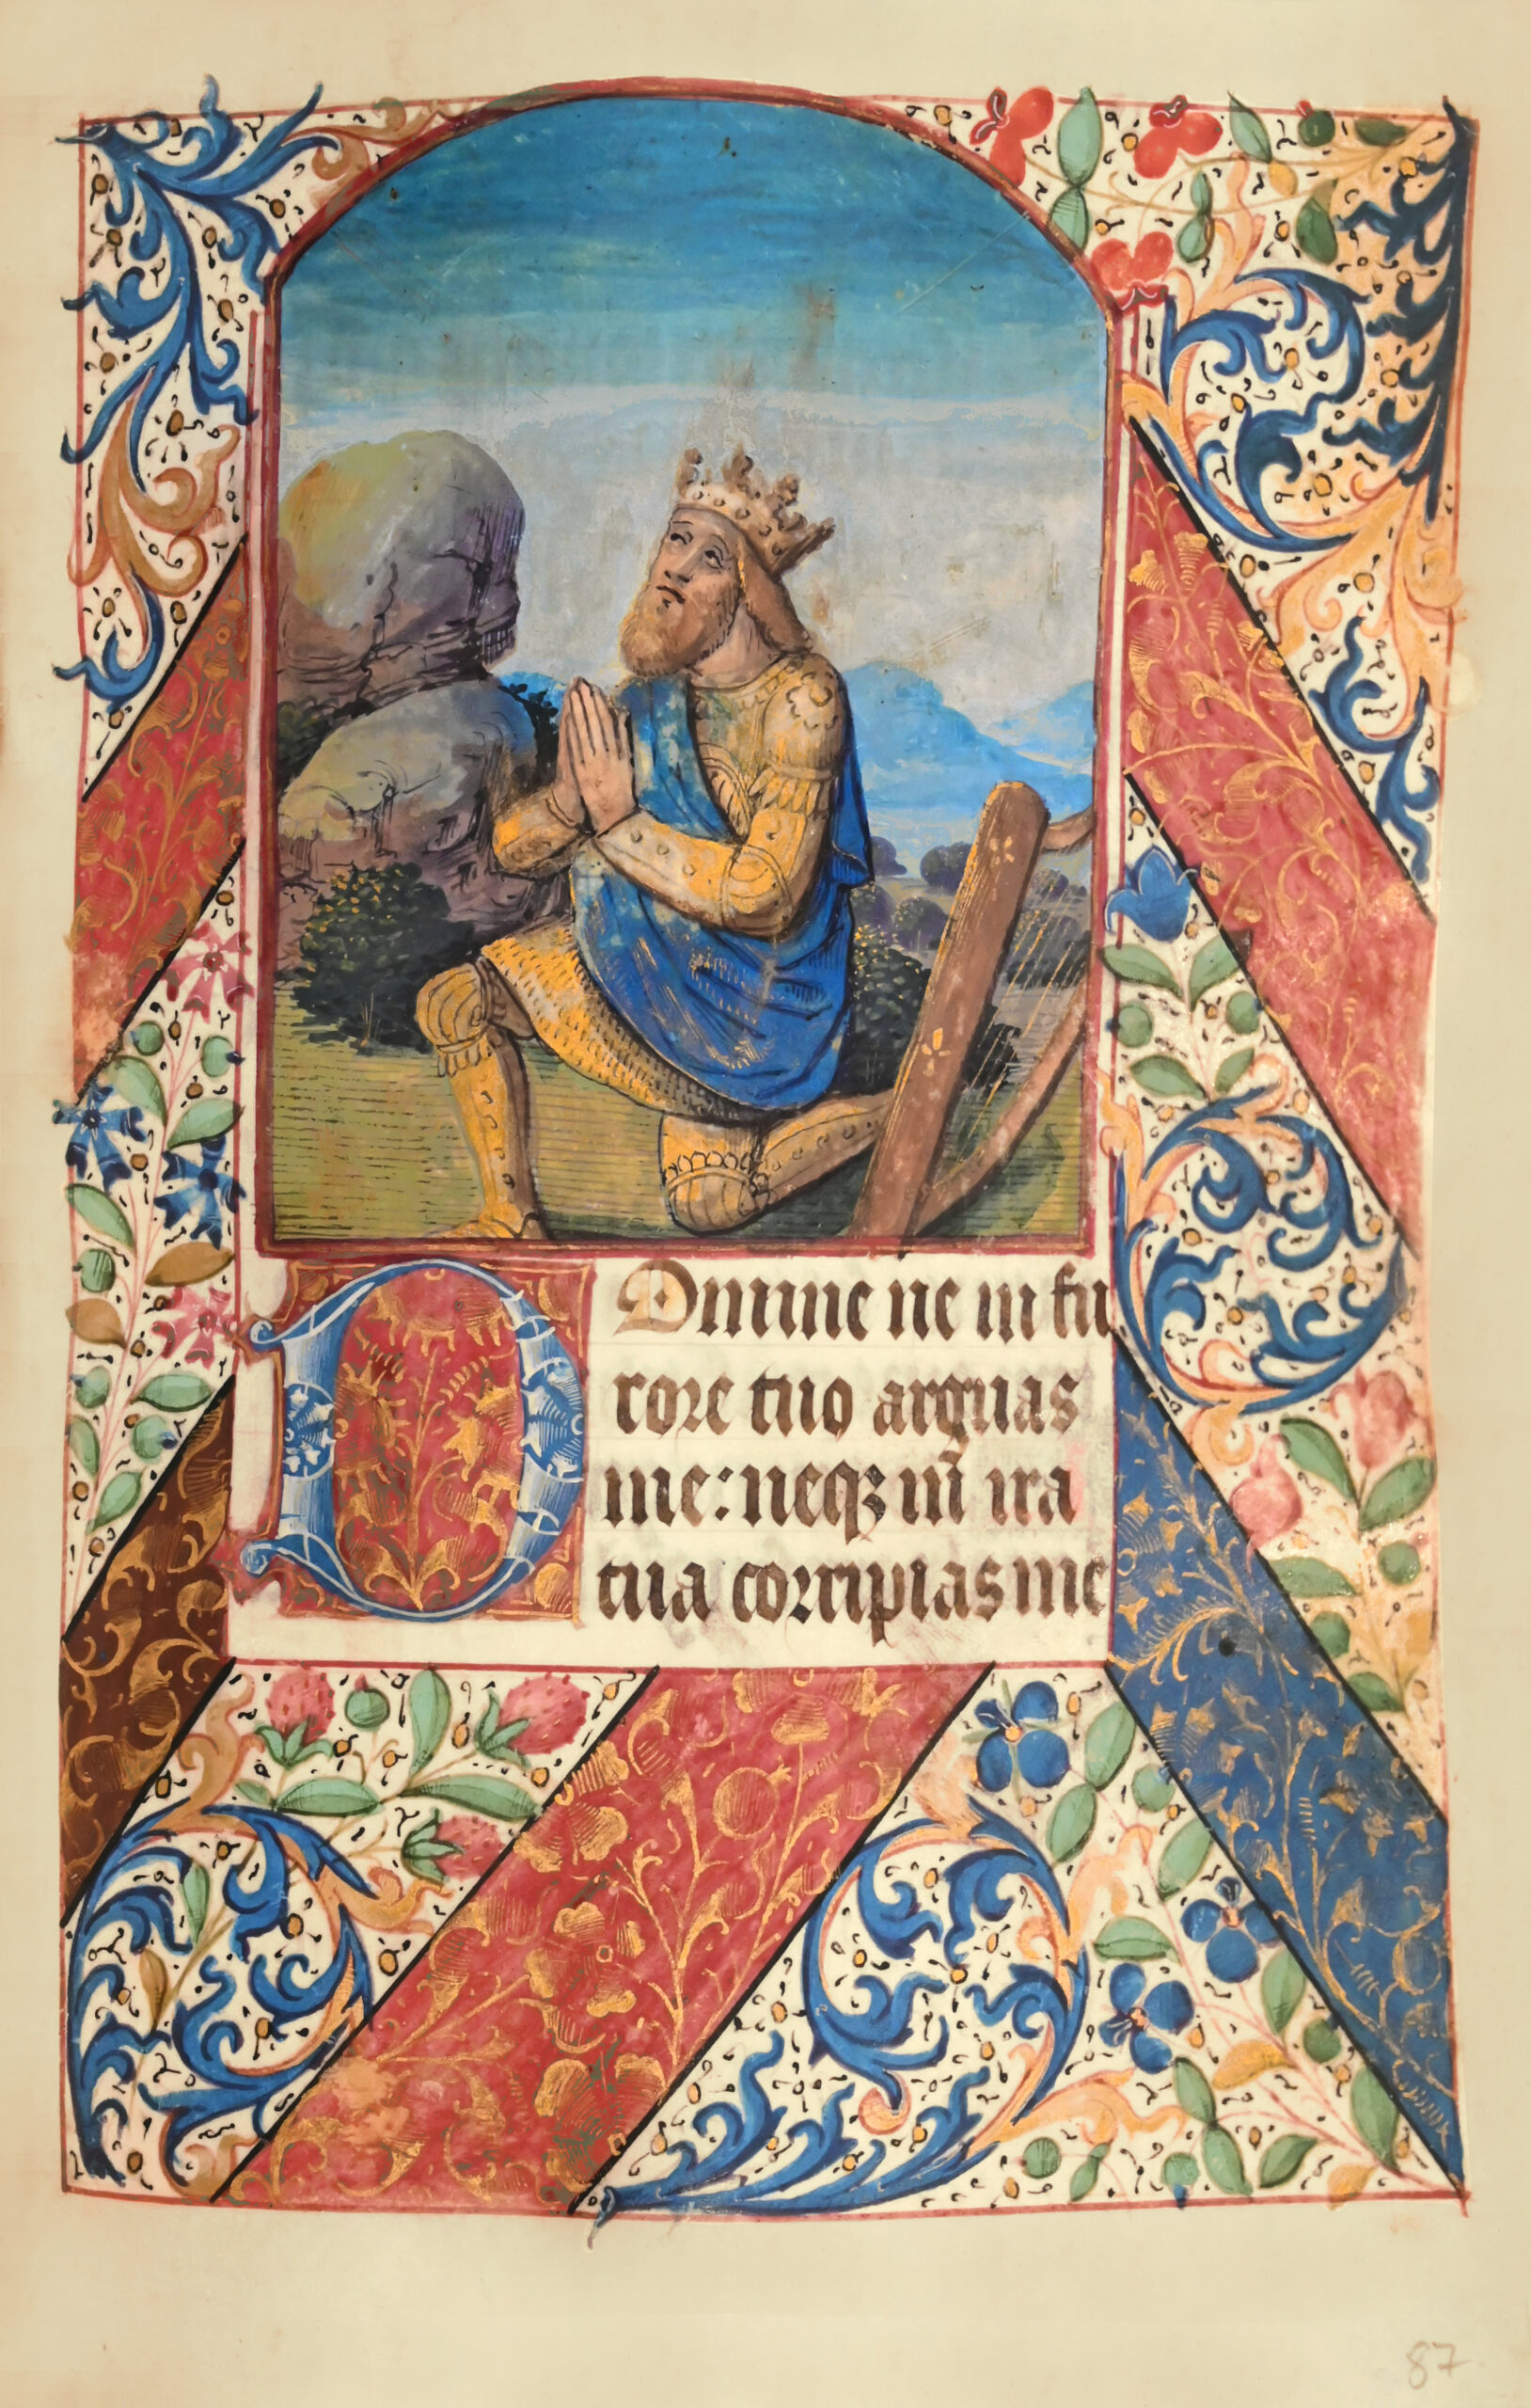 DOmine ne in fu
rore tuo arguas
me: neqꝫ in̄ ira
tua corripias me
87